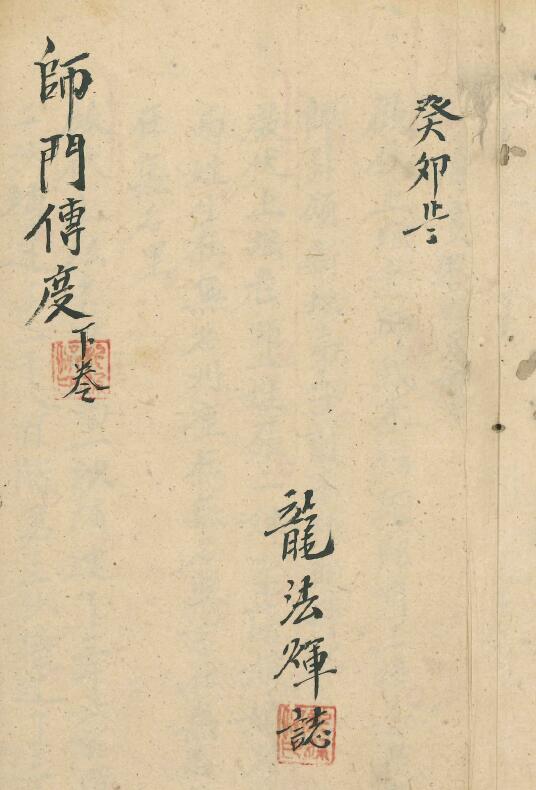 癸卯歲
龍法輝誌
師門傳度下卷